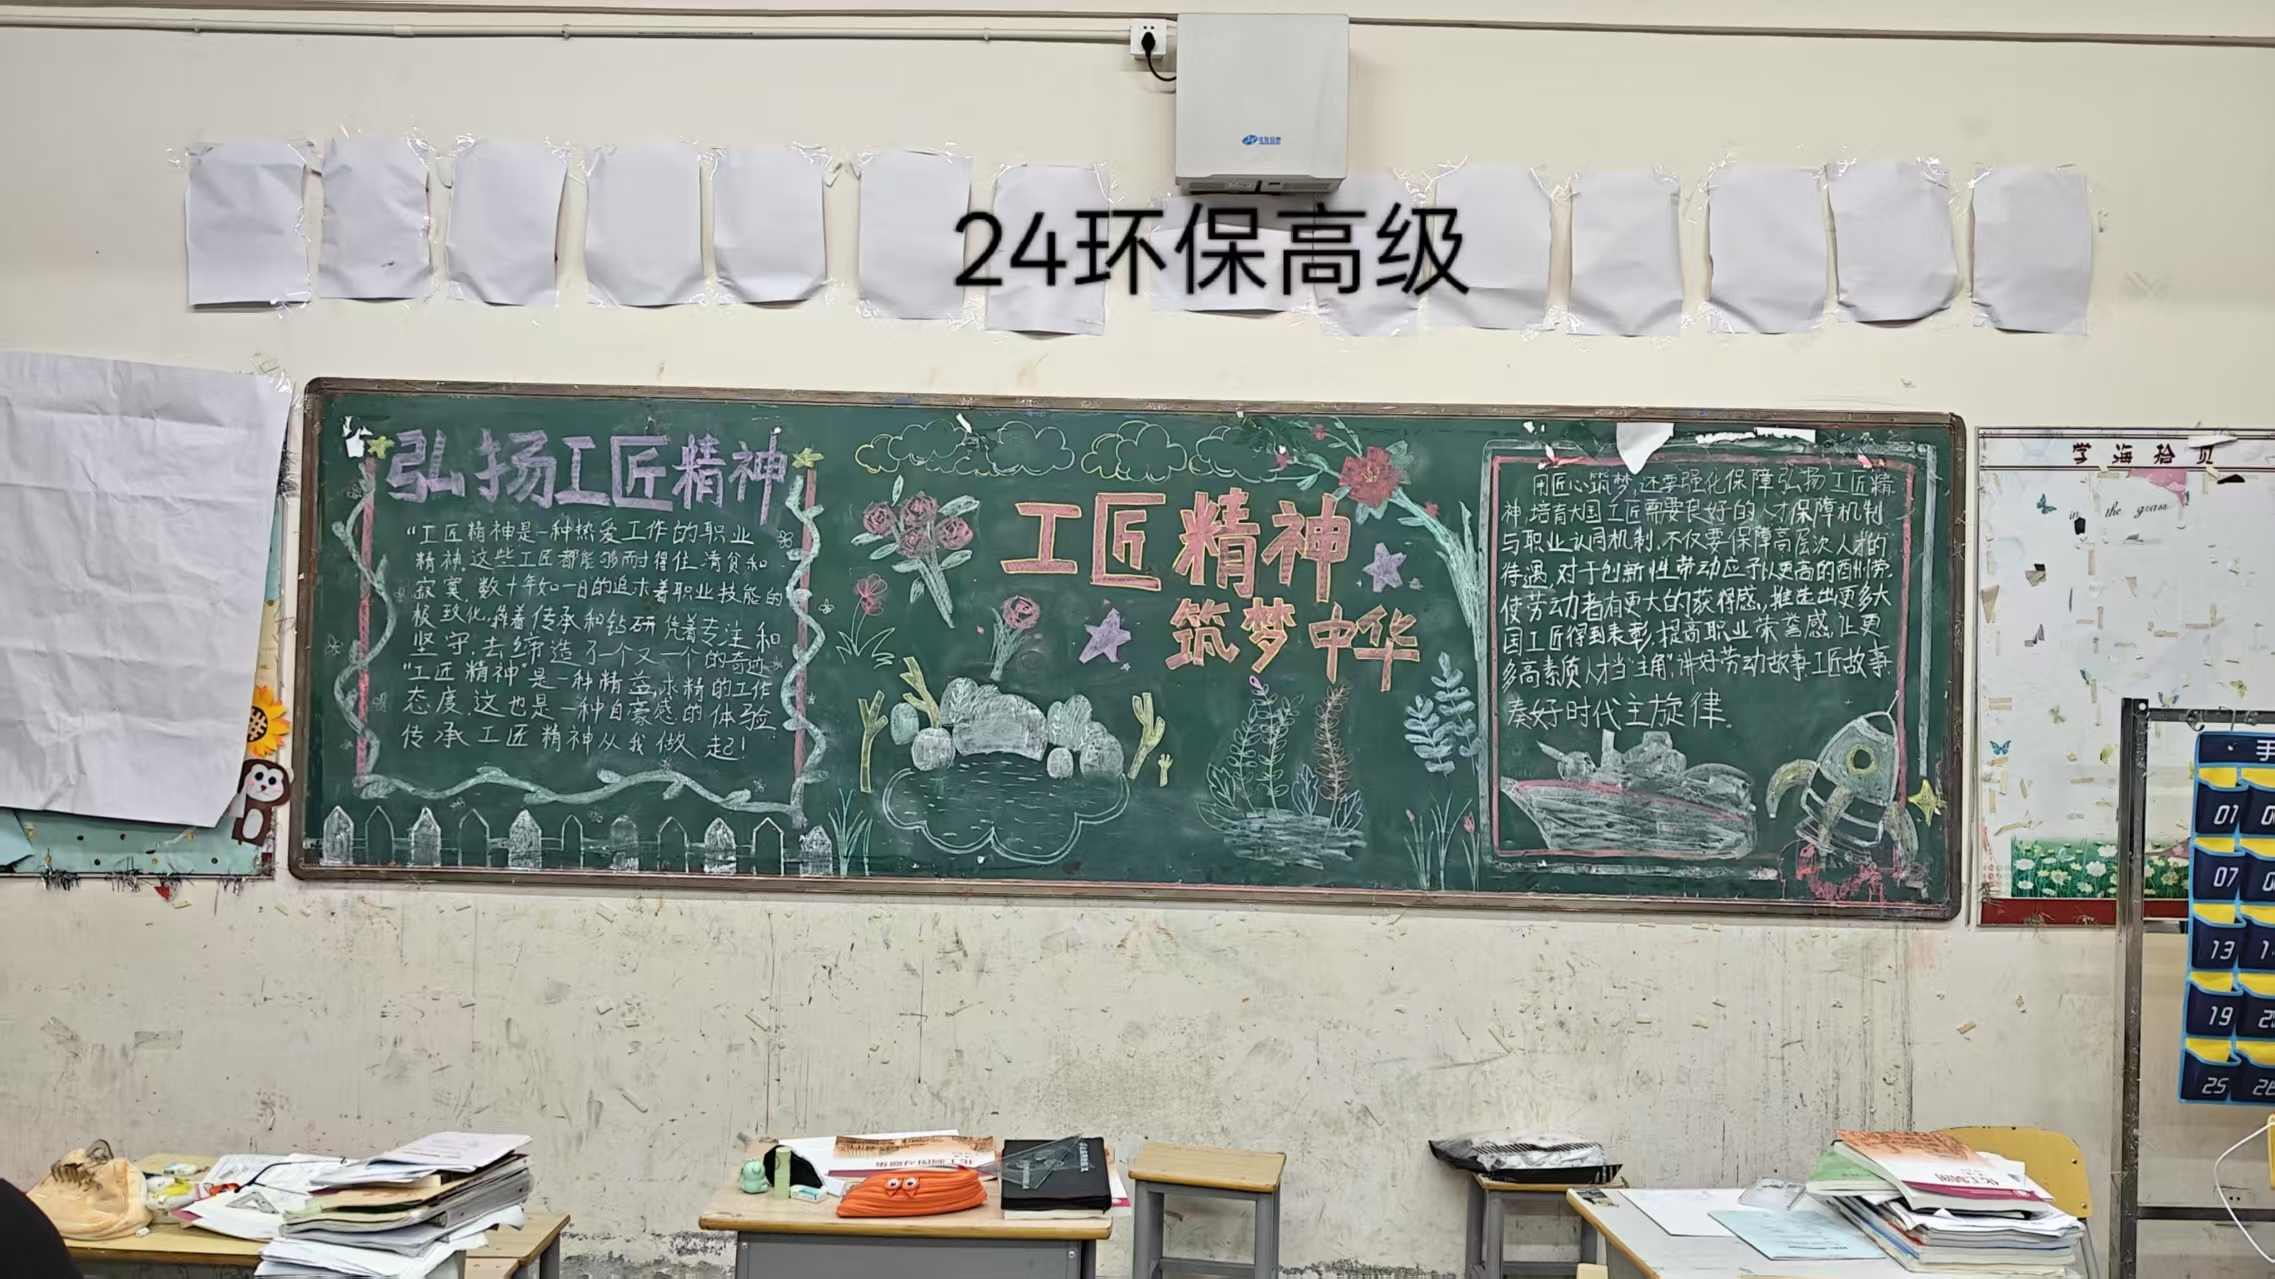 24环保高级
弘扬工匠精神
“工匠精神是一种热爱工作的职业
精神,这些工匠都能够耐得住清贫和
寂寞,数十年如一日的追求着职业技能的
极致化,靠着传承和钻研凭着专注和
坚守,去缔造了一个又一个的奇迹
“工匠精神”是一种精益求精的工作
态度,这也是一种自豪感的体验
传承工匠精神从我做起!
工匠精神
筑梦中华
用匠心筑梦,还要强化保障弘扬工匠精
神,培育大国工匠需要良好的人才保障机制
与职业认同机制.不仅要保障高层次人才的
待遇,对于创新性劳动应予以更高的酬劳.
使劳动者有更大的获得感,推选出更多大
国工匠得到表彰,提高职业荣誉感,让更
多高素质人才当“主角”,讲好劳动故事工匠故事.
奏好时代主旋律.
学海拾贝
in the grass
手
01
07
13
19
25